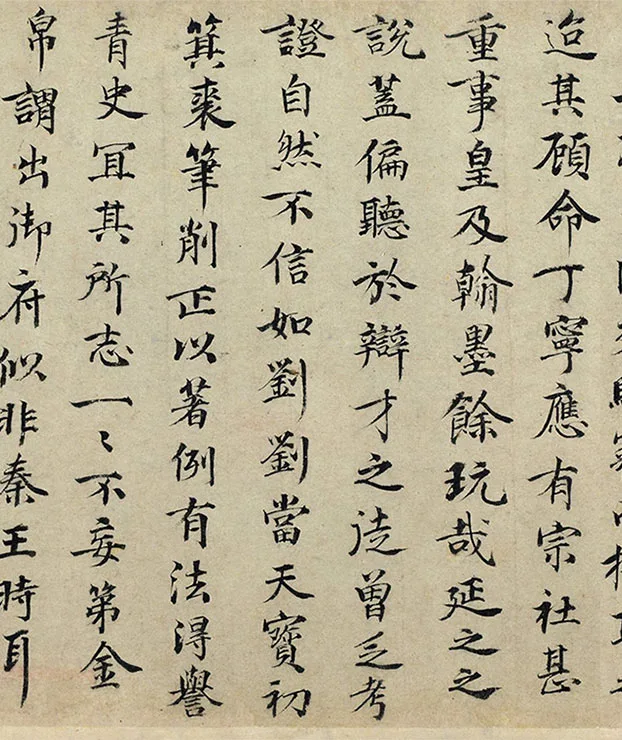 迨其顧命丁寧應有宗社甚
重事皇及翰墨餘玩哉延之之
說蓋偏聽於辯才之徒曾乏考
證自然不信如劉劉當天寶初
箕裘筆削正以著例有法淂譽
青史冝其所志一〻不妄第金
帛謂出御府似非秦王時耳